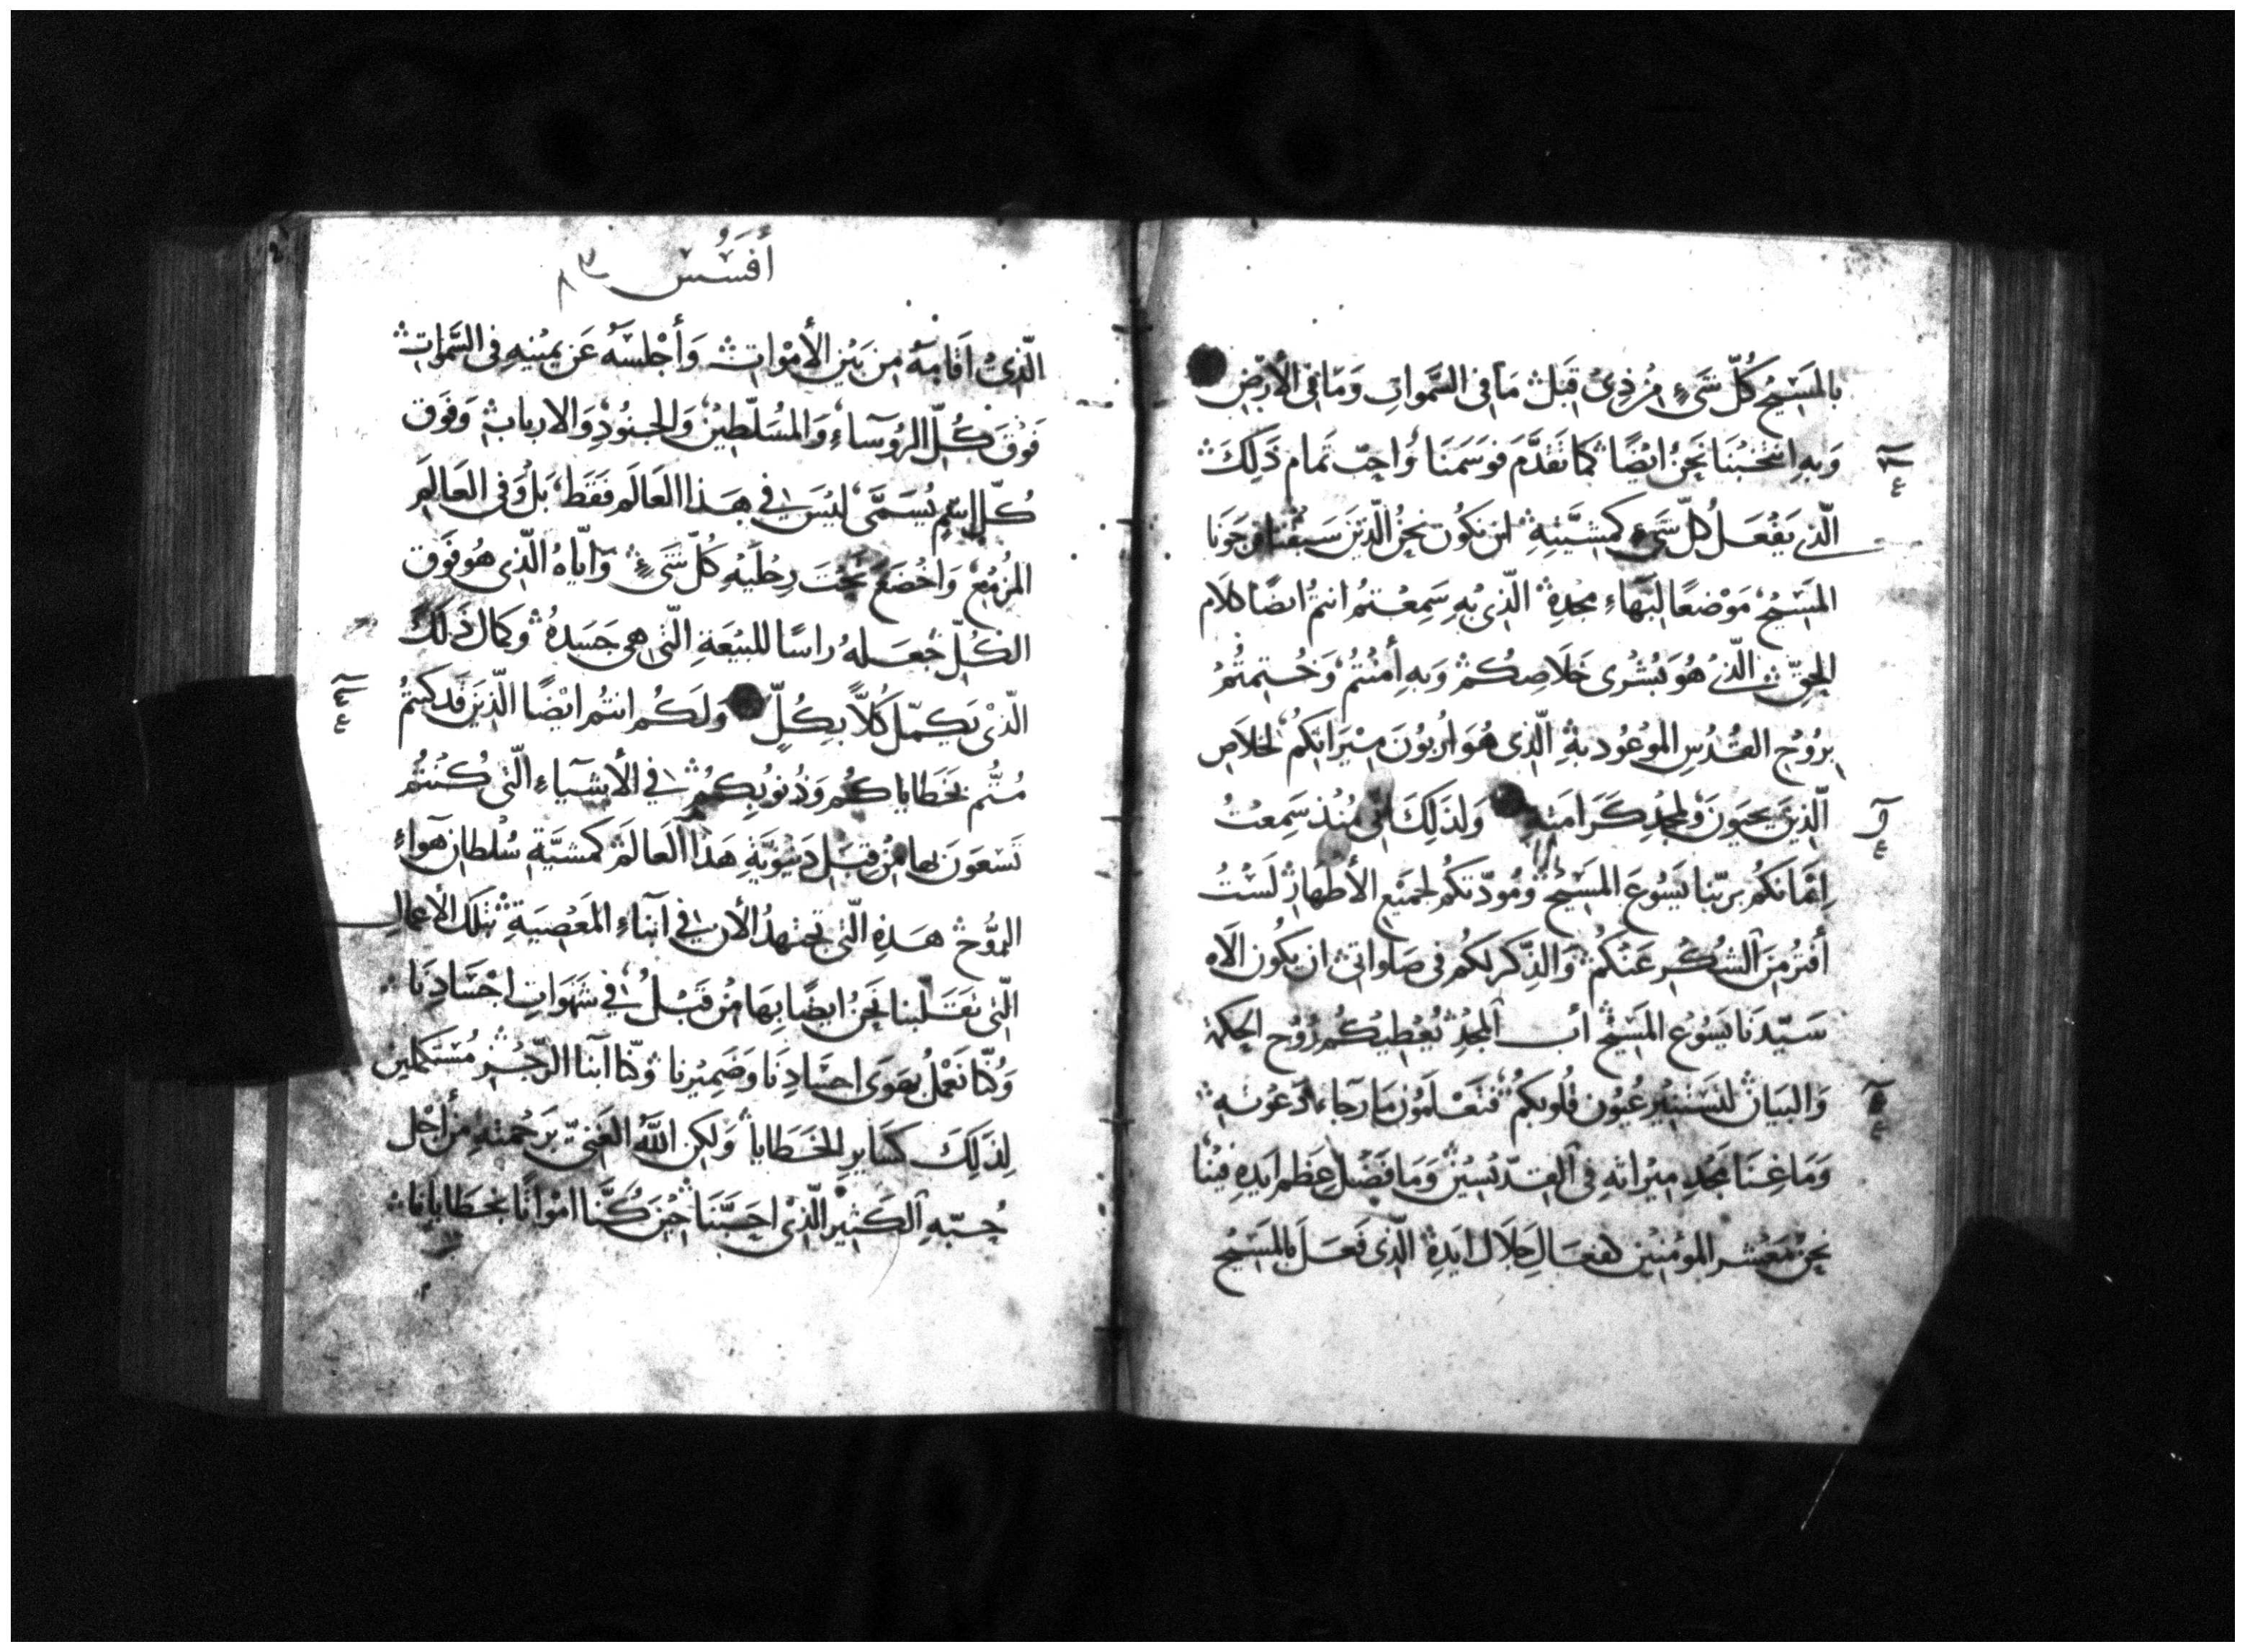 بالمَسِيحُ كُلّ شَيءٍ مِن ذِى قَبل مَا فى السَّمواتِ وَمَا فى الأرض
وَبهِ انتخبنَا نَحنُ ايضًا كمَا تقَدَّمَ فوَسَمَنَا وَاحبّ تمام ذَلِكَ
الّذى يَفعَلُ كلّ شَىء كمشيَّتِهِ لان نكون نحنُ الّذينَ سَبقنا فرجَونَا
المسيحُ مَوضعًا لبَهَاءِ مجدهِ الّذى بهِ سَمِعتم انتمُ ايضًا كلام
الحقّ الّذى هُوَ بُشرى خَلاصِكُم وَبهِ أمَنتُم وَخُتمتُمُ
بِرُوحِ القُدُسِ الموعُود بهِ الّذى هُوَ اربُونَ مِيرَاثكم لخلاصِ
الّذينَ يحيَونَ وَلمجدِ كَرَامَتهِ وَلذلِكَ انّى مُنذ سَمِعتُ
اِيمَانكُم برَبّنا يَسُوعَ المسيح وَمَودّتكم لجَميعِ الأطهار لَستُ
أفتُر مِنَ الشُكرِ عَنكُم وَالذِّكر لكُم فى صَلواتى ان يكُون الاه
سَيّدنَا يَسُوع المَسيحِ أب المجدِ يُعطِيكُم رُوح الحِكمة
وَالبَيَان لتَستنيرَ عُيُون قلوبكُم فتَعلَمُون مَا رجاء دَعوَتهِ
وَمَا غِنَا مجدِ مِيرَاثهِ فى القِدّيسين وَمَا فَضل عِظم ايدِهِ فينَا
نحن مَعشر المؤمنين كفعَالِ جَلال ايدِهِ الّذى فَعَلَ بالمَسيح
أفسُس
الّذى اقَامَهُ مِن بَين الأموَات وَأجلسَهُ عَن يمينهِ فى السَّموات
فَوقَ كُلّ الرُؤسَاءِ وَالمُسَلّطين وَالجنُودِ وَالارباب وَفَوق
كُلّ اسم يُسَمَّى ليسَ فى هَذا العَالَم فقَط بَل وَفى العَالَم
المزمع وَاخضَعَ تحتَ رِجليهِ كُلّ شَىءٍ وَايّاهُ الّذى هُو فَوق
الكُلّ جَعَلهُ رَاسًا للبيعَةِ الّتى هى جَسَدهُ وَكمال ذَلكَ
الّذى يَكمّل كُلاً بِكُلٍّ وَلَكم انتُم ايضًا الّذينَ قَد كنتُم
مُتُّم بخَطَاياكُم وَذُنوبكُم فى الأشيَاءِ الّتى كُنتُم
تَسعَونَ بها مِن قِبَل دَنيَوِيَّةِ هَذا العَالَم كمَشيَّةِ سُلطان هَوَاءِ
الرُّوح هَذِهِ الّتى تجتهدُ الأن فى ابنَاءِ المَعصيَةِ بتلكَ الأعمالِ
الّتى تقَلّبنا نَحنُ ايضًا بهَا مِن قَبلُ فى شَهَوَاتِ اجسَادِنَا
وَكنّا نَعمَلُ بهَوَى اجسَادِنَا وَضَميرنا وَكنّا ابنا الرّجز مُستكملين
لِذلِكَ كسَايرِ الخَطَايا وَلكِن اللهُ الغَنىّ برَحمتهِ مِن أجل
حُبّهِ الكَثير الّذى احَبَّنَا حِينَ كُنَّا اموَاتًا بخَطَايَانا